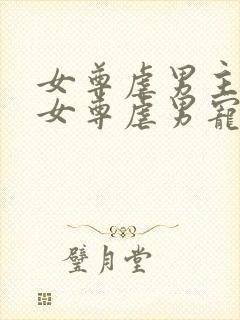 女尊虐男主
女尊虐男寵
璧月堂